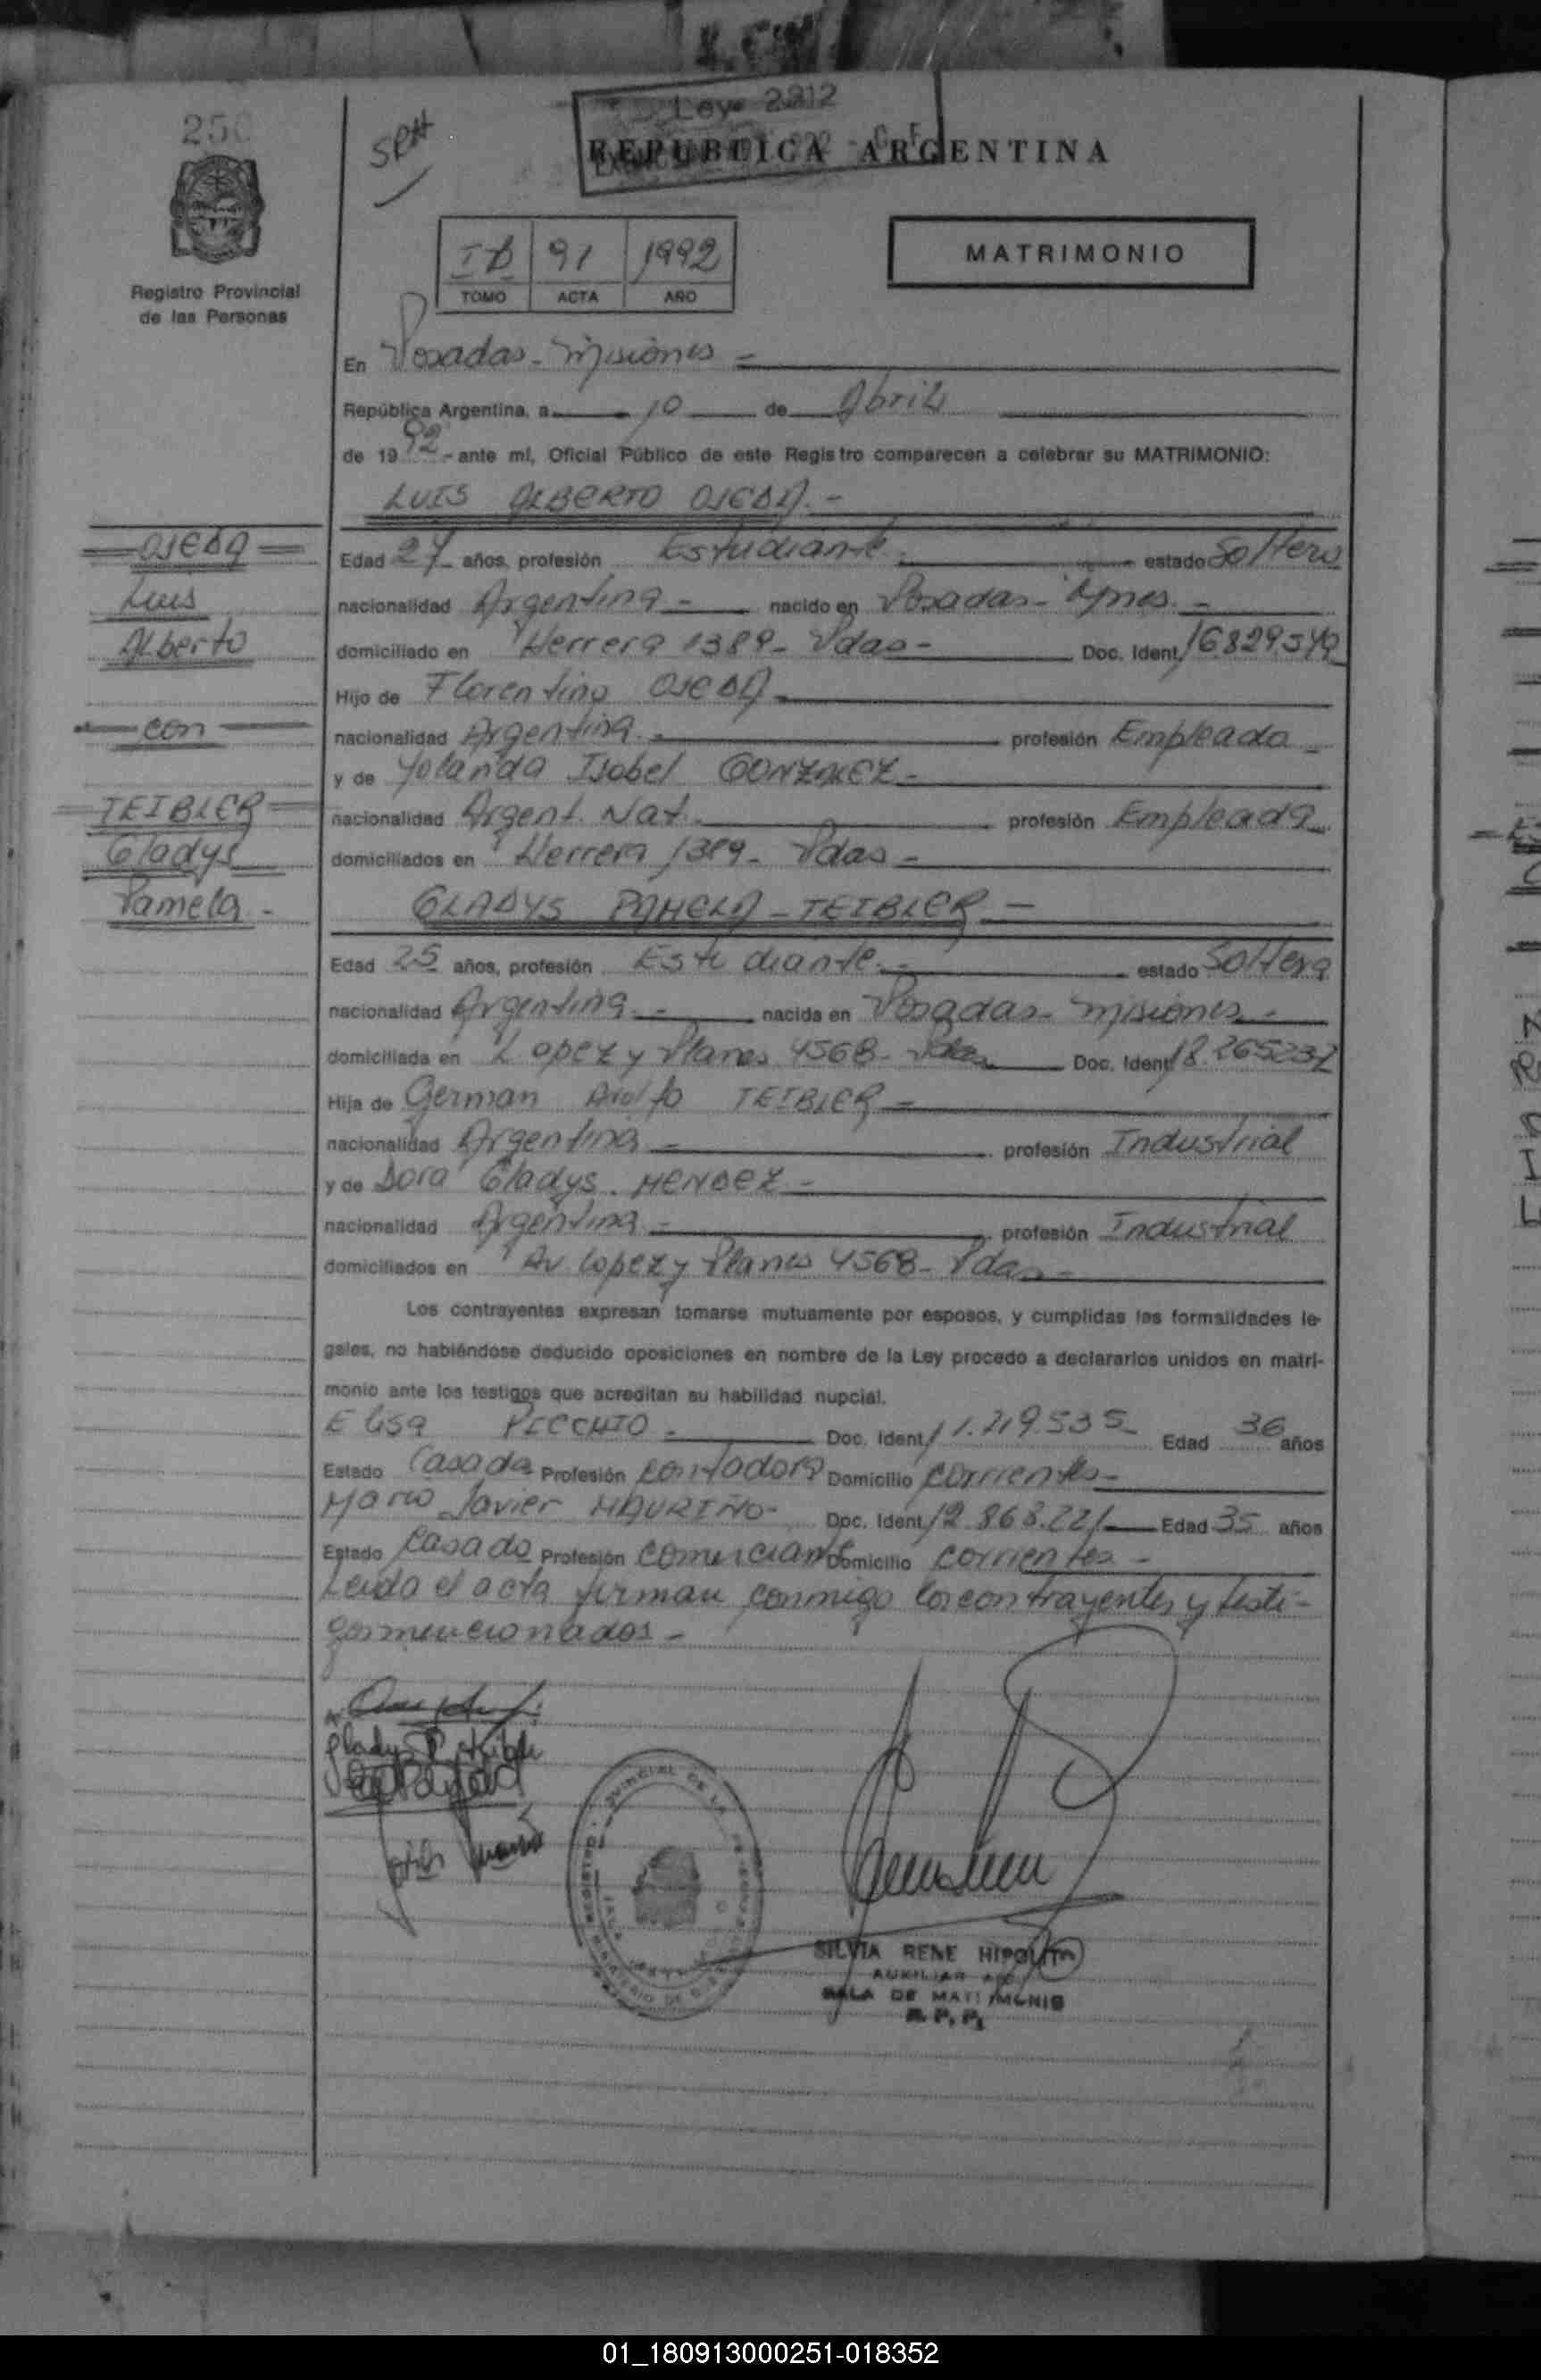 250
SRH
Ley 2912
REPUBLICA ARGENTINA
Registro Provincial
de las Personas
91 1992
TOMO ACTA AÑO
MATRIMONIO
En Posadas - Misiones =
República Argentina, a 10 de Abril
de 1992 - ante mí, Oficial Público de este Registro comparecen a celebrar su MATRIMONIO:
LUIS ALBERTO OJEDA.-
OJEDA
Luis
Alberto
con
TEIBLER
Gladys
Pamela -
Edad 27 años, profesión Estudiante.- estado Soltero
nacionalidad Argentina - nacido en Posadas - Mnes. -
domiciliado en Herrera 1389 - Pdas - Doc. Ident.
Hijo de Florentino OJEDA -
nacionalidad Argentina - profesión Empleado -
y de Yolanda Isabel GONZALEZ -
nacionalidad Argent. Nat. profesión Empleada
domiciliados en Herrera 1389 - Pdas -
GLADYS PAMELA - TEIBLER -
Edad 25 años, profesión Estudiante.- estado Soltera
nacionalidad Argentina - nacida en Posadas - Misiones -
domiciliada en Lopez y Planes 4568 - Pdas Doc. Ident. 18.265232
Hija de German TEIBLER -
nacionalidad Argentina - profesión Industrial
y de Dora Gladys. MENDEZ -
nacionalidad Argentina - profesión Industrial
domiciliados en Av Lopez y Planes 4568 - Pdas -
Los contrayentes expresan tomarse mutuamente por esposos, y cumplidas las formalidades le-
gales, no habiéndose deducido oposiciones en nombre de la Ley procedo a declararlos unidos en matri-
monio ante los testigos que acreditan su habilidad nupcial.
Elisa PICCHIO - Doc. Ident. 11.719.535 - Edad 36 años
Estado Casada Profesión Contadora Domicilio Corrientes -
Mario Javier MAURIÑO - Doc. Ident. 12.868.221 - Edad 35 años
Estado Casado Profesión Comerciante Domicilio Corrientes -
Leida el acta firman conmigo los contrayentes y testi-
gos mencionados -
SILVIA RENE HIPOLITO
AUXILIAR
SALA DE MATRIMONIO
R. P. P.
01_180913000251-018352